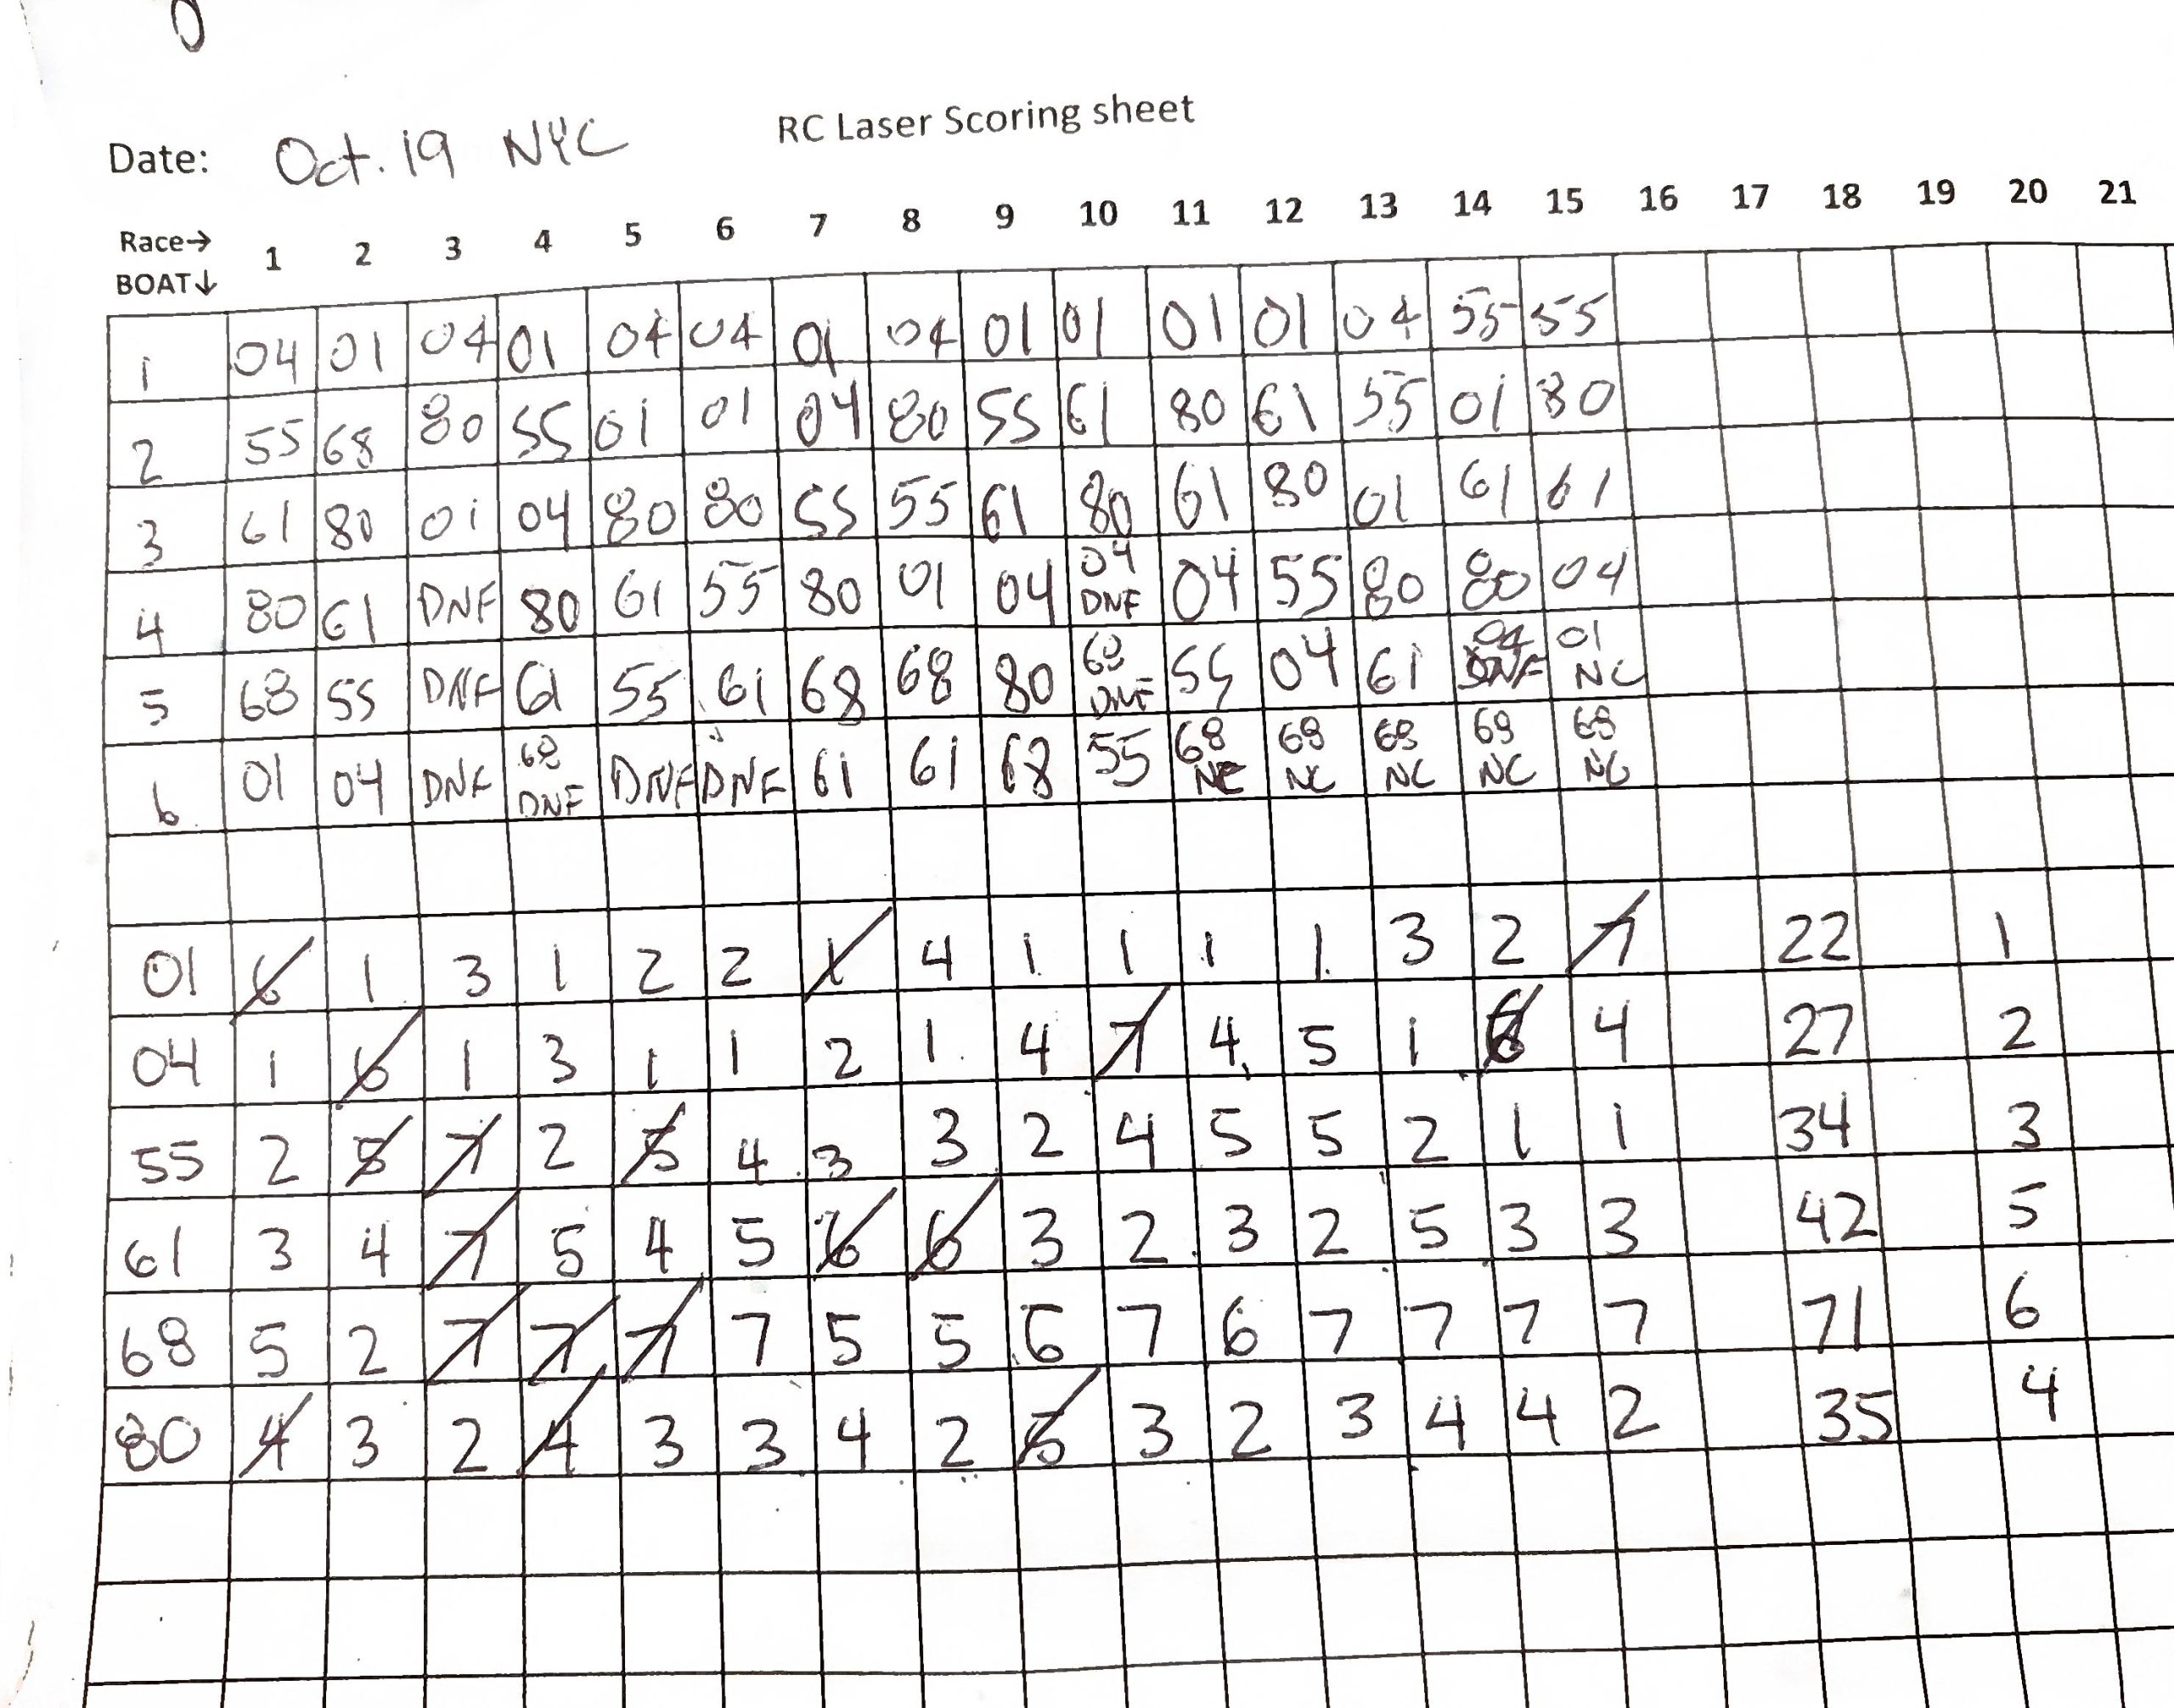 0
RC Laser Scoring sheet
Date: Oct. 19 NYC
Race→ 1 2 3 4 5 6 7 8 9 10 11 12 13 14 15 16 17 18 19 20 21
BOAT↓
1 04 01 04 01 04 04 01 04 01 01 01 01 04 55 55
2 55 68 80 55 01 01 04 80 55 61 80 61 55 01 80
3 61 80 01 04 80 80 55 55 61 80 61 80 01 61 61
4 80 61 DNF 80 61 55 80 01 04 04 DNF 04 55 80 80 04
5 68 55 DNF 61 55 61 68 68 80 68 DNF 55 04 61 04 DNF 01 NC
6 01 04 DNF 68 DNF DNF DNF 61 61 68 55 68 NC 68 NC 68 NC 68 NC 68 NC
01 6 1 3 1 2 2 1 4 1 1 1 1 3 2 7 22 1
04 1 6 1 3 1 1 2 1 4 7 4 5 1 6 4 27 2
55 2 5 7 2 5 4 3 3 2 4 5 5 2 1 1 34 3
61 3 4 7 5 4 5 6 6 3 2 3 2 5 3 3 42 5
68 5 2 7 7 7 7 5 5 6 7 6 7 7 7 7 71 6
80 4 3 2 4 3 3 4 2 5 3 2 3 4 4 2 35 4